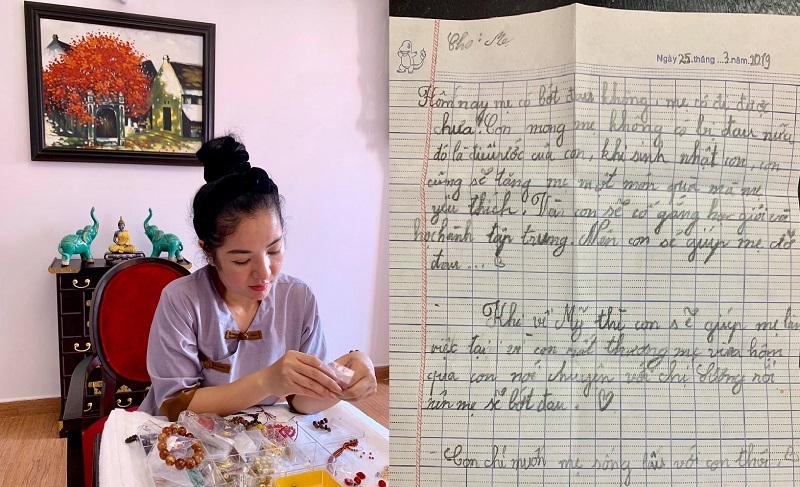 Cho: Mẹ
Ngày 25 tháng ... 3 năm 2019
Hôm nay mẹ có bớt đau không, mẹ có đi được
chưa. Con mong mẹ không có bị đau nữa
đó là điều ước của con, khi sinh nhật con, con
cũng sẽ tặng mẹ một món quà mà mẹ
yêu thích. Và con sẽ cố gắng học giỏi và
học hành tập trung. Mén con sẽ giúp mẹ đỡ
đau...
- Khi về Mỹ thì con sẽ giúp mẹ làm
việc tại vì con rất thương mẹ vừa hôm
qua con nói chuyện với chị Hồng nói
nên mẹ sẽ bớt đau.
- Con chỉ muốn mẹ sống lâu với con thôi.